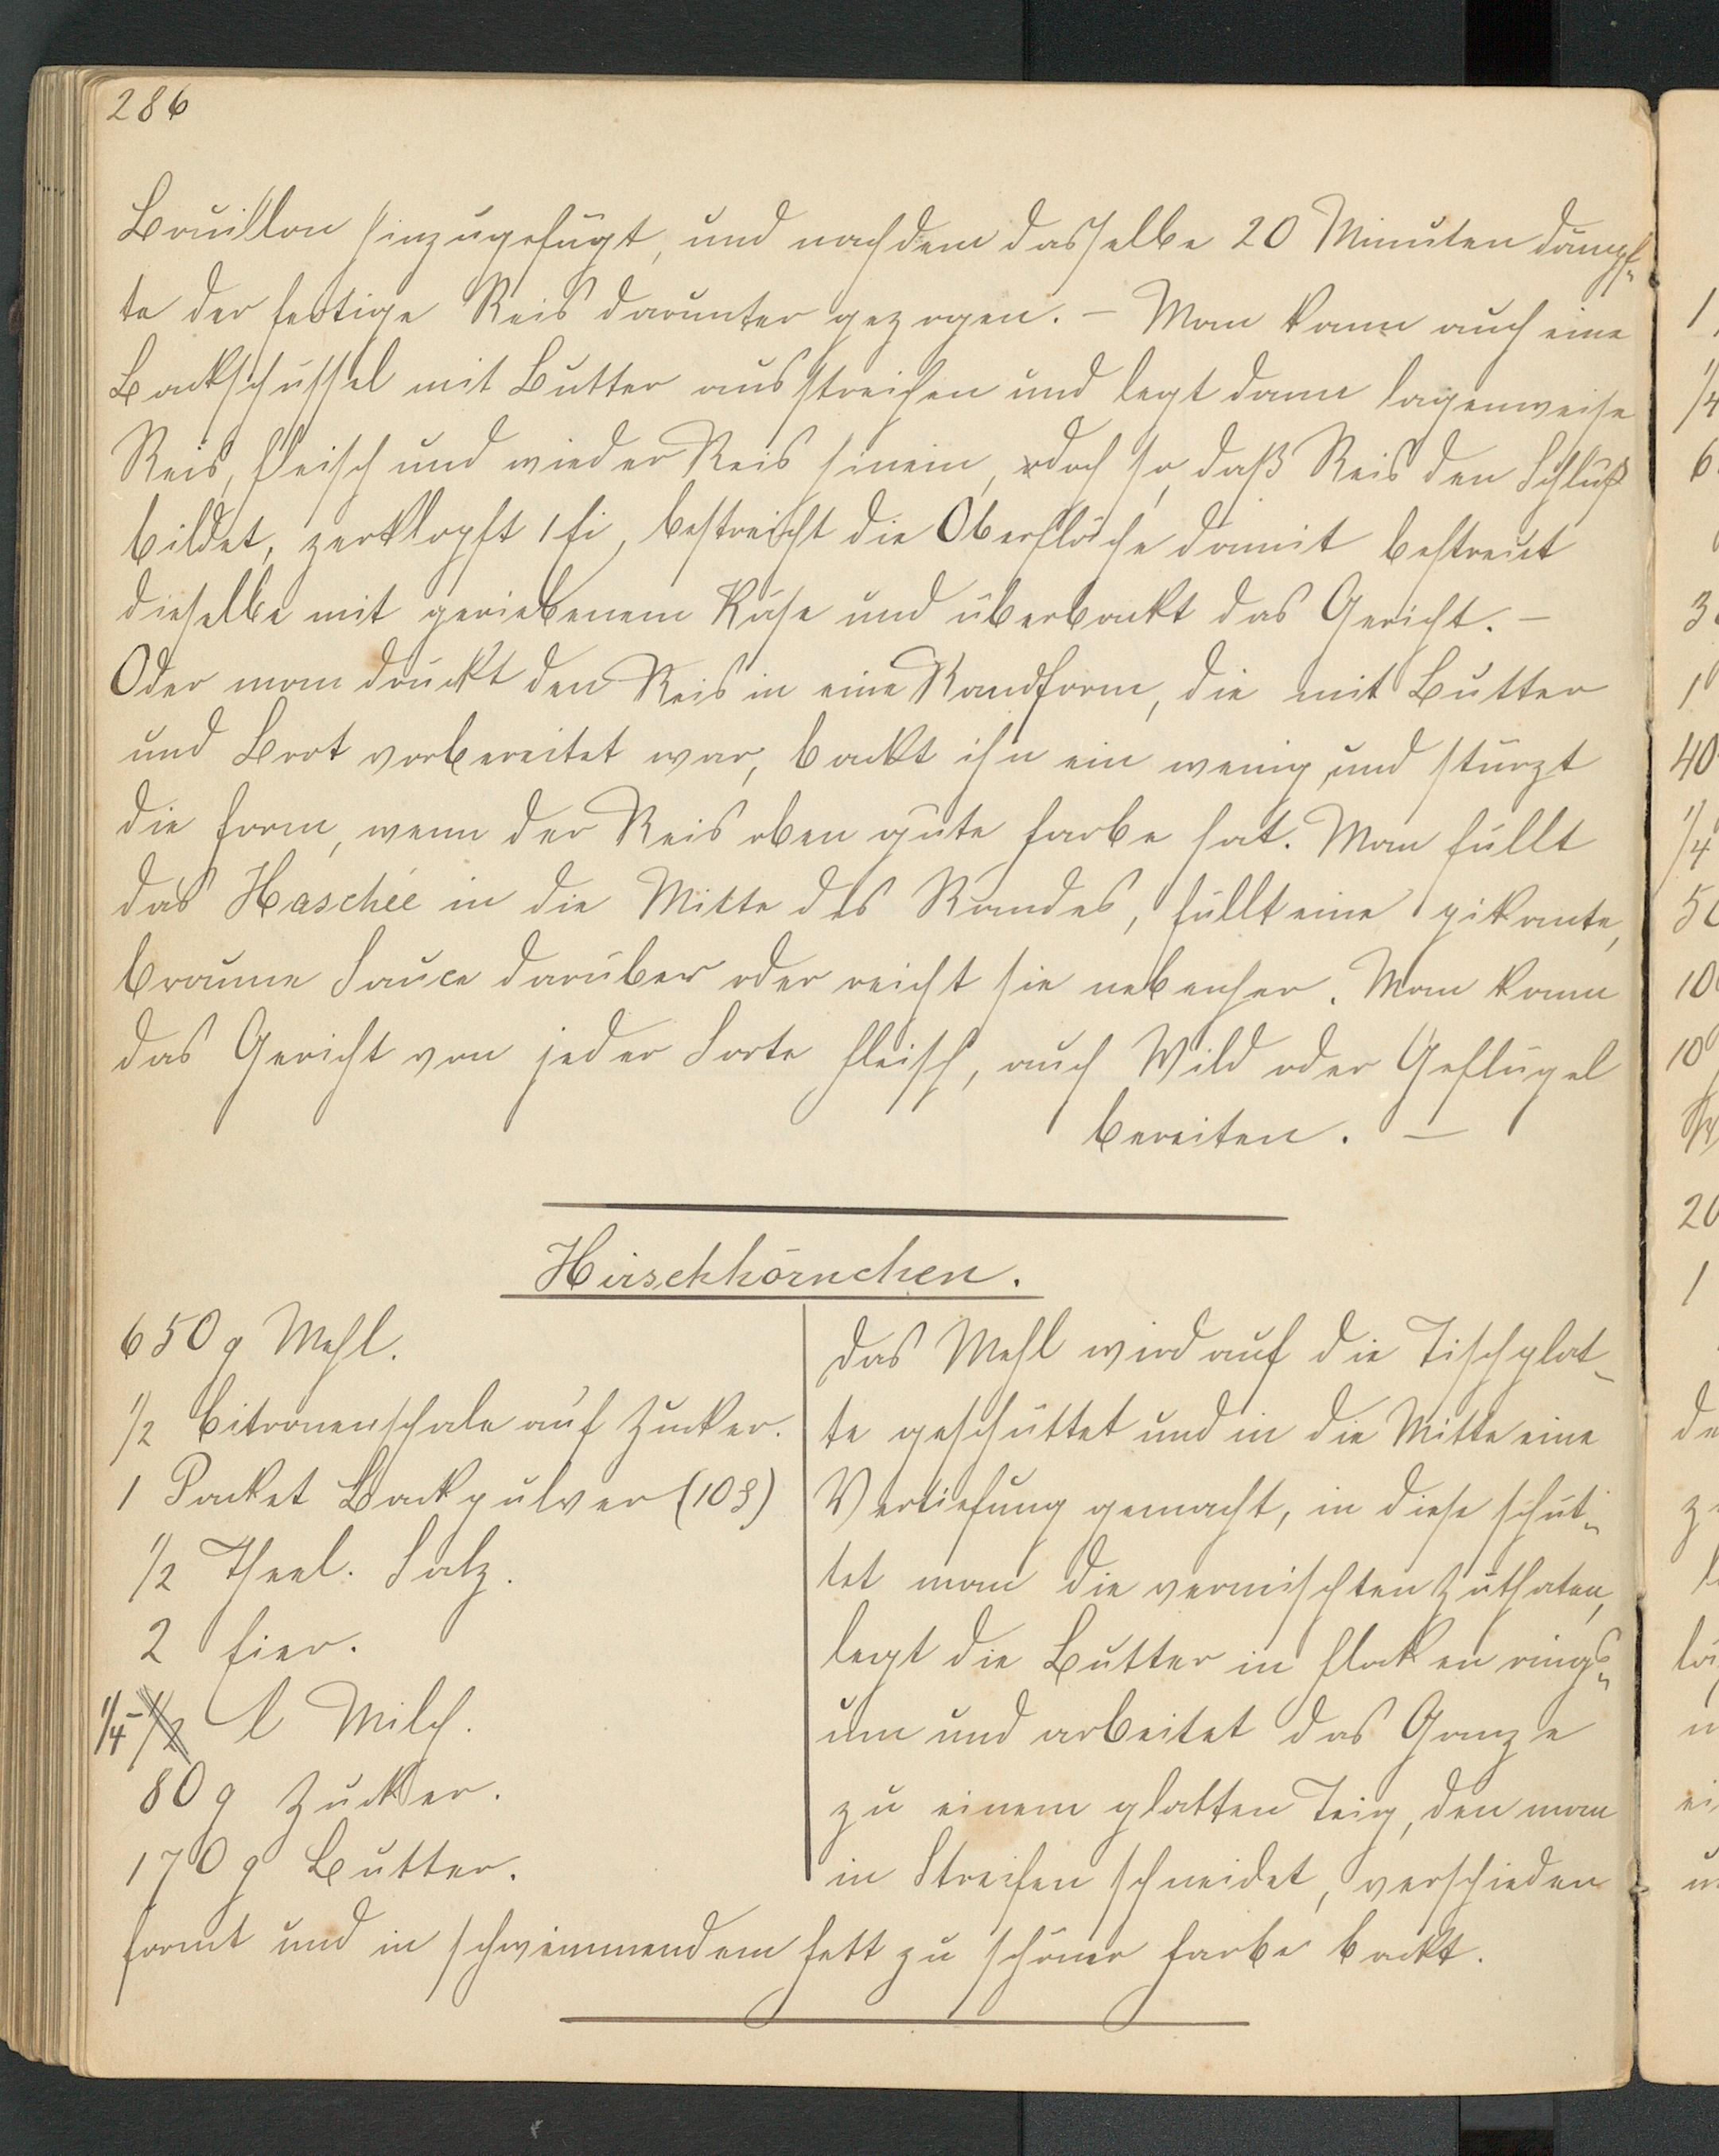 286
Bouillon hinzugefügt, und nachdem dasselbe 20 Minuten dämpf-
te der fertige Reis darunter gezogen. – Man kann auch eine
Backschüssel mit Butter ausstreichen und legt dann lagenweise
Reis, Fleisch und wieder Reis hinein, doch so, daß Reis den Schluß
bildet, zerklopft 1 Ei, bestreicht die Oberfläche damit bestreut
dieselbe mit geriebenem Käse und überbackt das Gericht. –
Oder man drückt den Reis in eine Randform, die mit Butter
und Brot vorbereitet war, backt ihn ein wenig, und stürzt
die Form, wenn der Reis oben gute Farbe hat. Man füllt
das Haschée in die Mitte des Randes, füllt eine pikante,
braune Sauce darüber oder reicht sie nebenher. Man kann
das Gericht von jeder Sorte Fleisch, auch Wild oder Geflügel
bereiten. –
Hirschhörnchen.
650 g Mehl.
1/2 Citronenschale auf Zucker.
1 Packet Backpulver (10 ₰)
1/2 Theel. Salz.
2 Eier.
1/4 – 1/2 l Milch.
80 g Zucker.
170 g Butter.
Das Mehl wird auf die Tischplat-
te geschüttet und in die Mitte eine
Vertiefung gemacht, in diese schüt-
tet man die vermischten Zuthaten,
legt die Butter in Flocken rings-
um und arbeitet das Ganze
zu einem glatten Teig, den man
in Streifen schneidet, verschieden
formt und in schwimmendem Fett zu schöner Farbe backt.